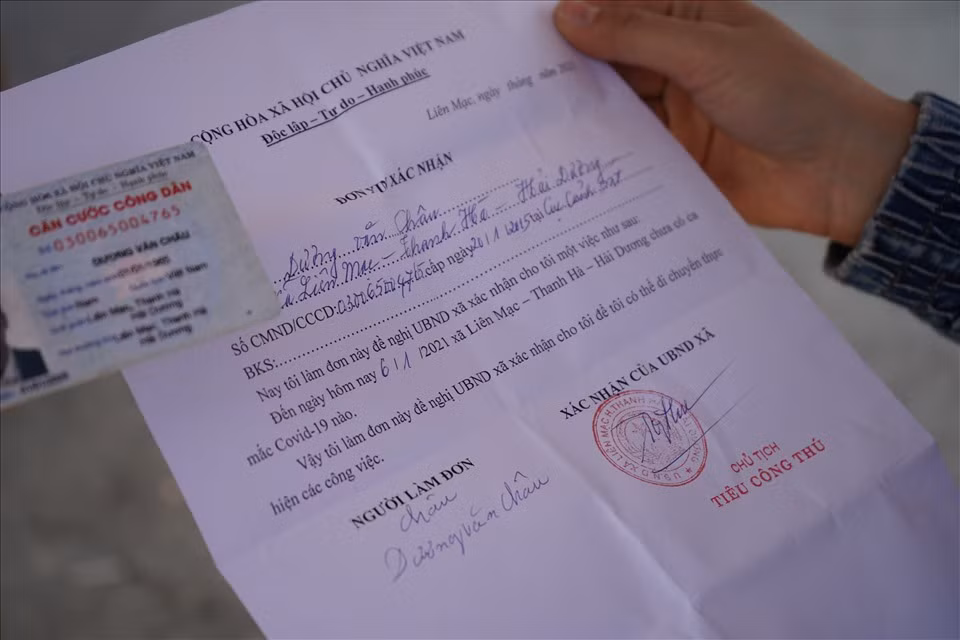 CỘNG HÒA XÃ HỘI CHỦ NGHĨA VIỆT NAM
Độc lập – Tự do – Hạnh phúc
Liên Mạc, ngày tháng năm 202
ĐƠN XÁC NHẬN
Dương Văn Châu
Liên Mạc – Thanh Hà – Hải Dương
Số CMND/CCCD: cấp ngày tại
BKS:
Nay tôi làm đơn này đề nghị UBND xã xác nhận cho tôi một việc như sau:
Đến ngày hôm nay 6/1/2021 xã Liên Mạc – Thanh Hà – Hải Dương chưa có ca
mắc Covid-19 nào.
Vậy tôi làm đơn này đề nghị UBND xã xác nhận cho tôi để tôi có thể di chuyển thực
hiện các công việc.
NGƯỜI LÀM ĐƠN
Châu
Dương Văn Châu
XÁC NHẬN CỦA UBND XÃ
U.B.N.D XÃ LIÊN MẠC H.THANH
CHỦ TỊCH
TIÊU CÔNG THÚ
CỘNG HÒA XÃ HỘI CHỦ NGHĨA VIỆT NAM
Độc lập - Tự do - Hạnh phúc
CĂN CƯỚC CÔNG DÂN
Số 030065004765
DƯƠNG VĂN CHÂU
Việt Nam
Liên Mạc, Thanh Hà
Hải Dương
Liên Mạc, Thanh Hà
Hải Dương